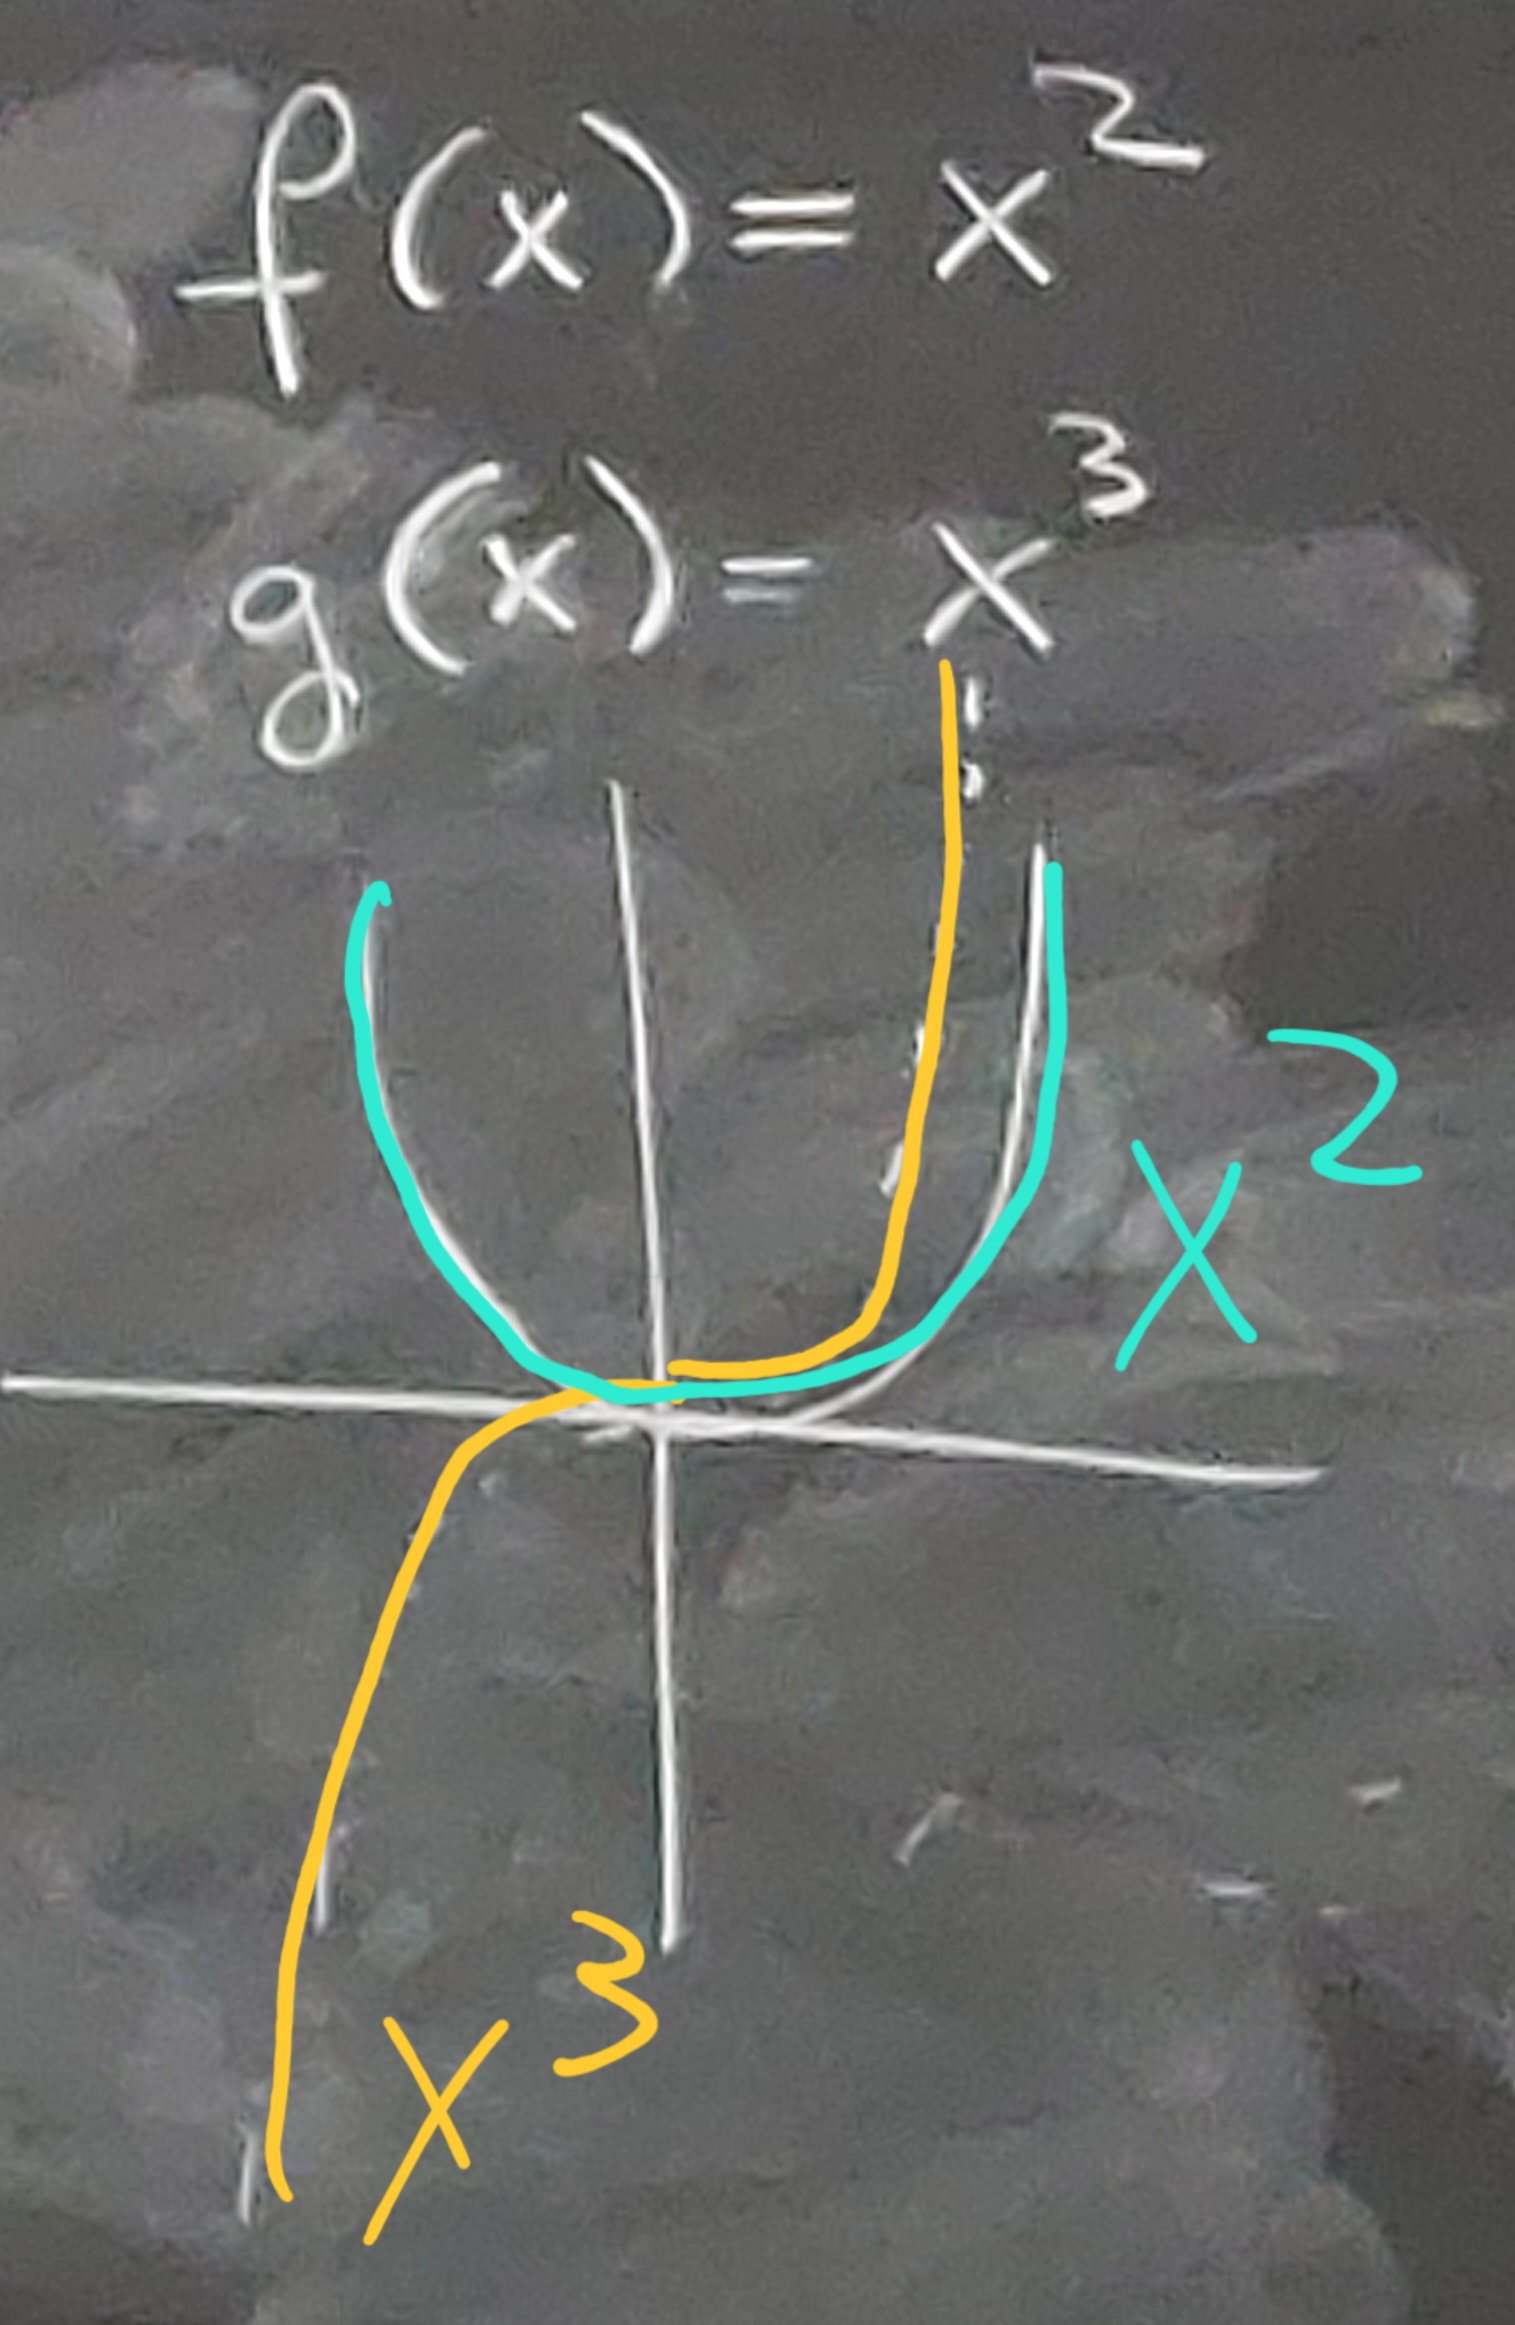 f(x)= x²
g(x)= x³
x²
x³